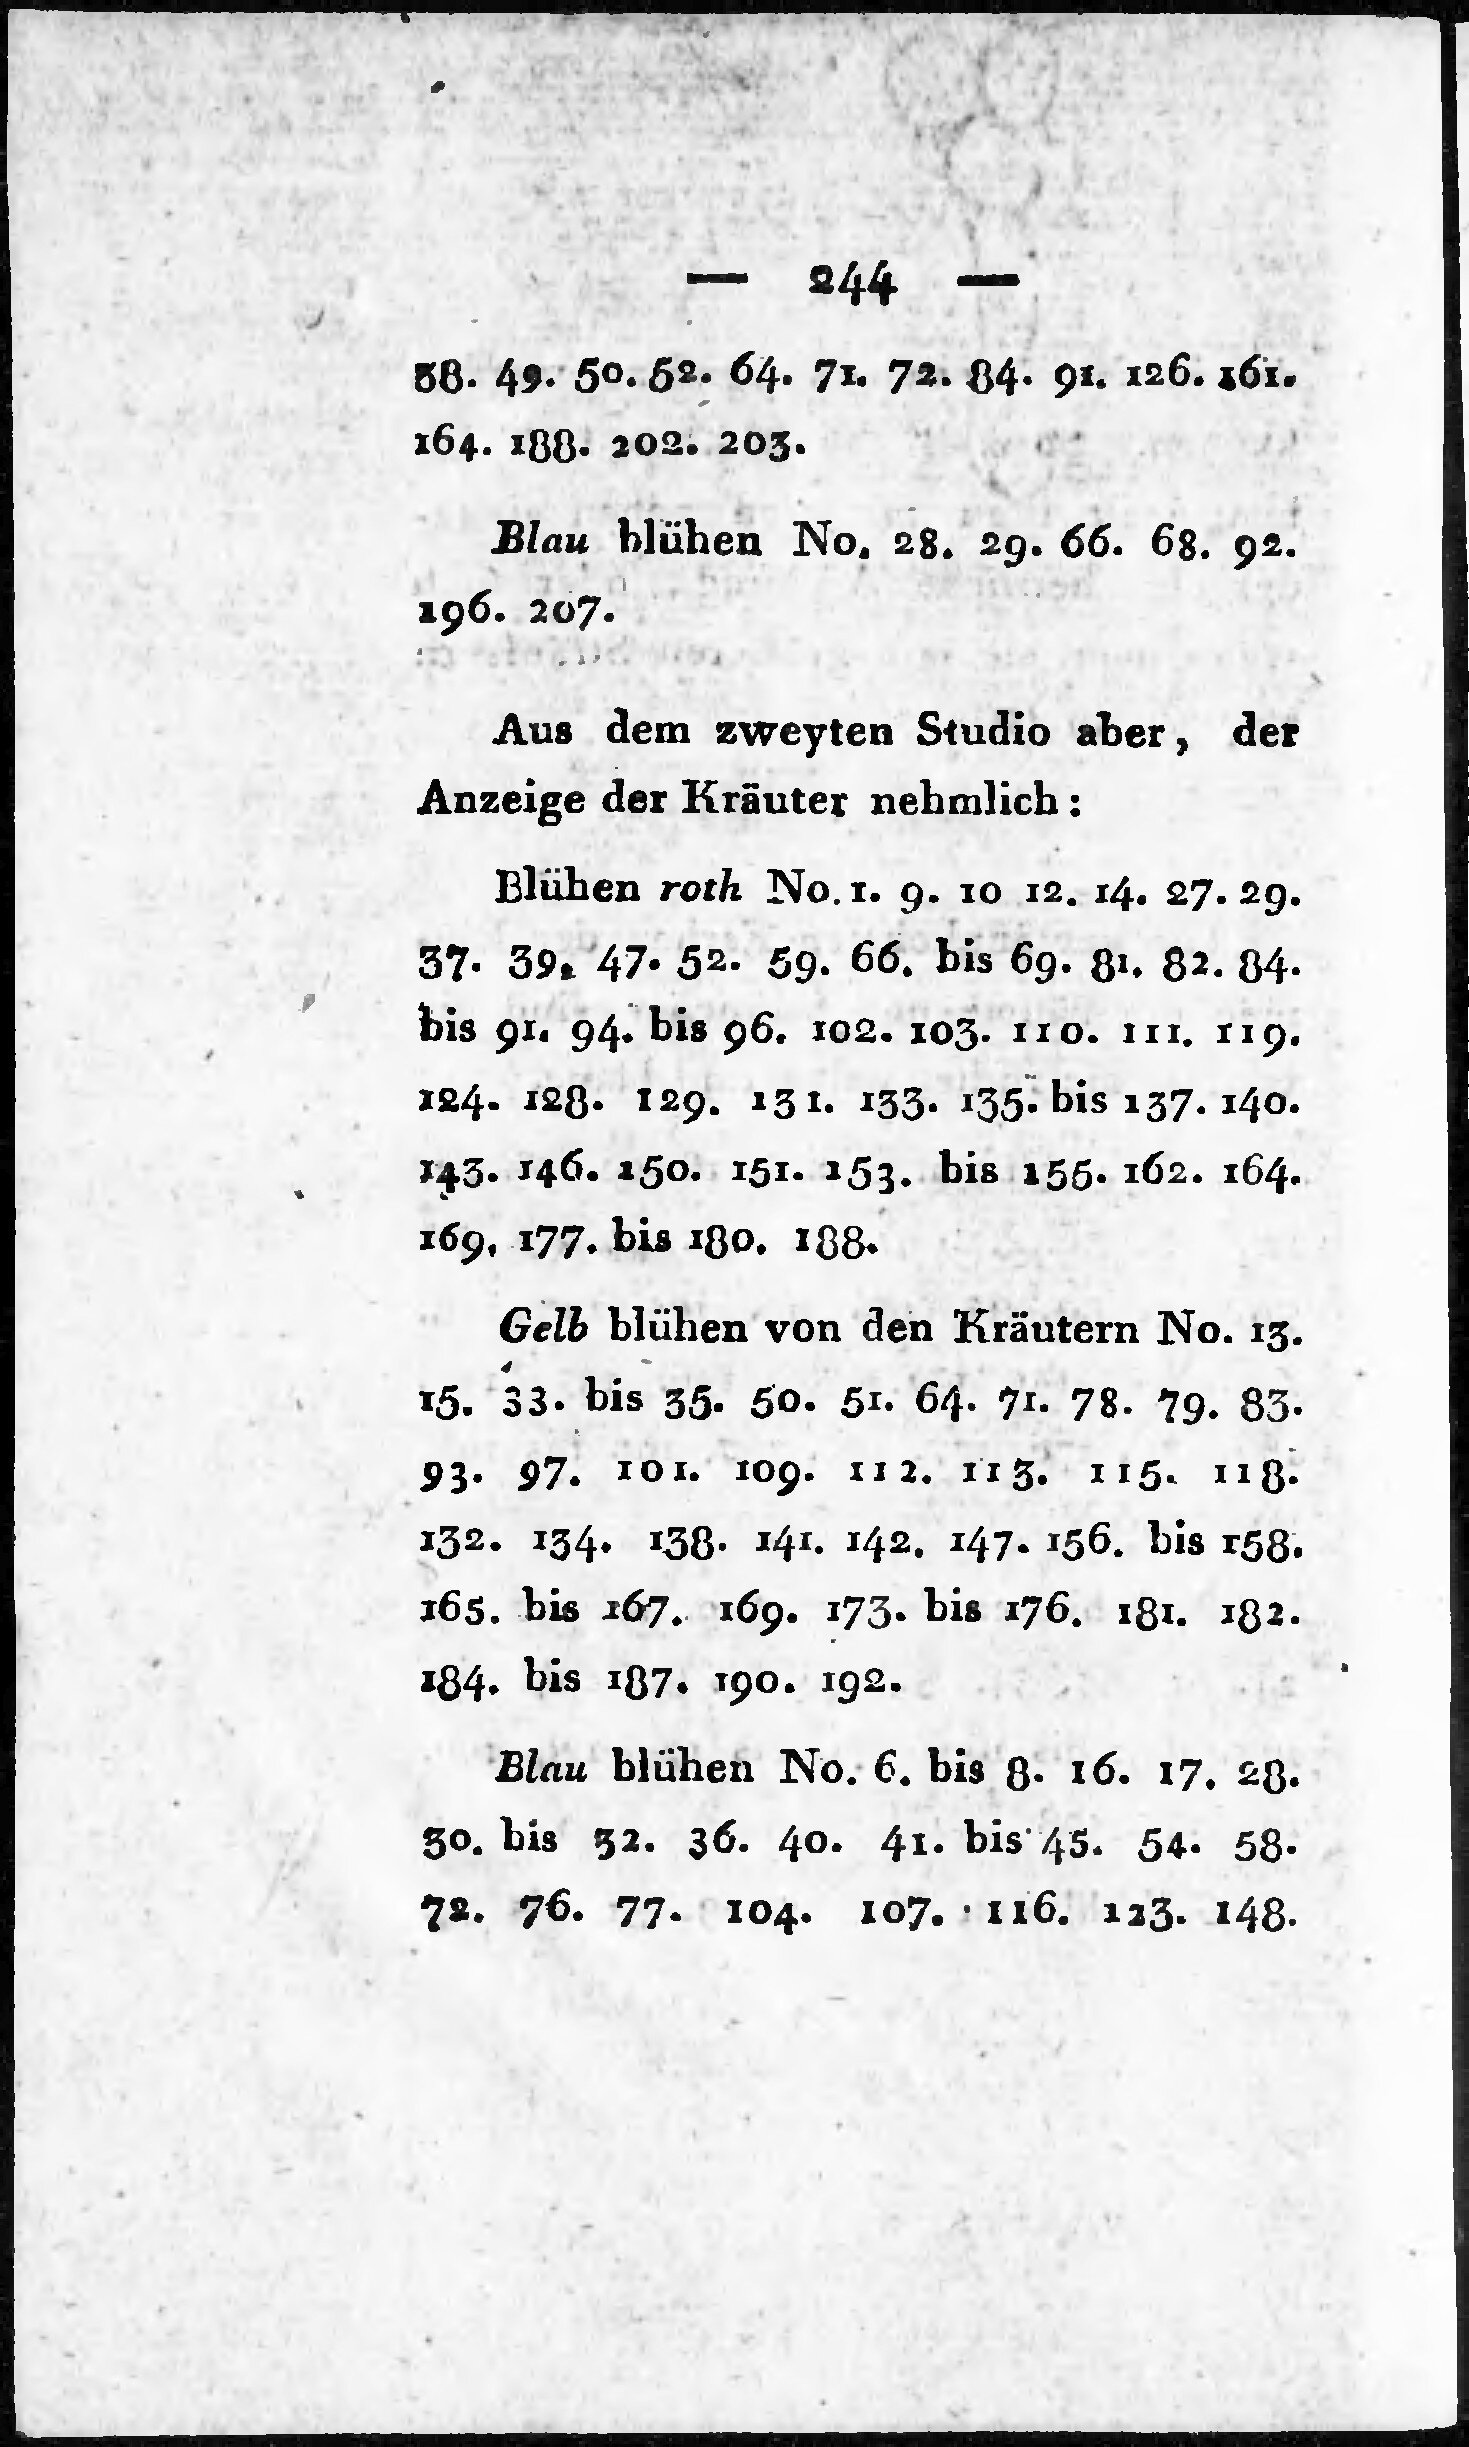 — 244 —
38. 49. 50. 52. 64. 71. 72. 84. 91. 126. 161.
164. 188. 202. 203.
Blau blühen No. 28. 29. 66. 68. 92.
196. 207.
Aus dem zweyten Studio aber, der
Anzeige der Kräuter nehmlich:
Blühen roth No. 1. 9. 10 12. 14. 27. 29.
37. 39. 47. 52. 59. 66. bis 69. 81. 82. 84.
bis 91. 94. bis 96. 102. 103. 110. 111. 119.
124. 128. 129. 131. 133. 135. bis 137. 140.
143. 146. 150. 151. 153. bis 155. 162. 164.
169. 177. bis 180. 188.
Gelb blühen von den Kräutern No. 13.
15. 33. bis 35. 50. 51. 64. 71. 78. 79. 83.
93. 97. 101. 109. 112. 113. 115. 118.
132. 134. 138. 141. 142. 147. 156. bis 158.
165. bis 167. 169. 173. bis 176. 181. 182.
184. bis 187. 190. 192.
Blau blühen No. 6. bis 8. 16. 17. 28.
30. bis 32. 36. 40. 41. bis 45. 54. 58.
72. 76. 77. 104. 107. 116. 123. 148.